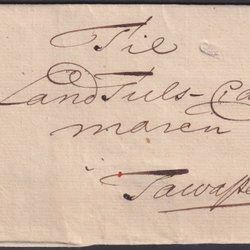 Til
Land Tuls-Ca
maren
i
Tawaste